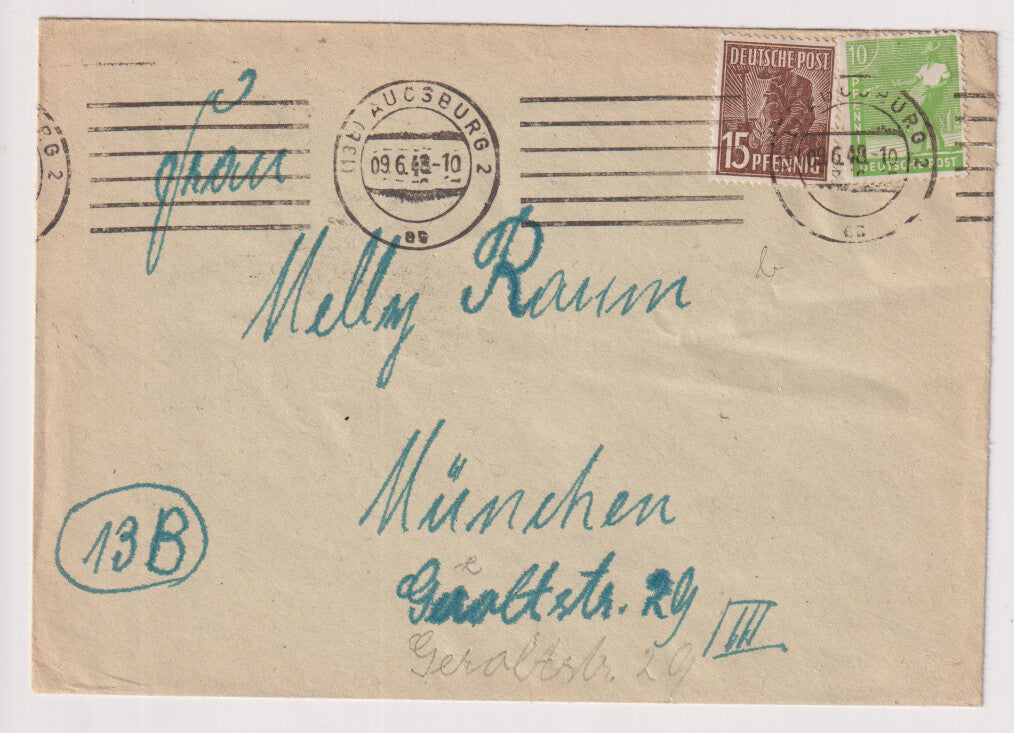 DEUTSCHE POST
15 PFENNIG
10 PFENNIG
DEUTSCHE POST
RG 2
(13b) AUGSBURG 2
09.6.48.-10
AUGSBURG 2
09.6.48.-10
Frau
Melly Raum
b
München
13B
Geraltstr. 29 III
e
Geraltstr. 29